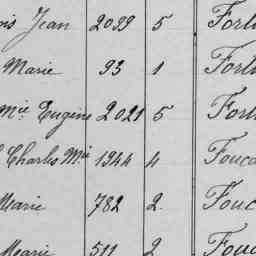 Jean 2099 5 Forl
Marie 93 1 Fort
Mie Eugène 2021 5 Fort
Charles Mie 1944 4 Fouc
Marie 782 2 Fouc
Marie 511 2 Fouc